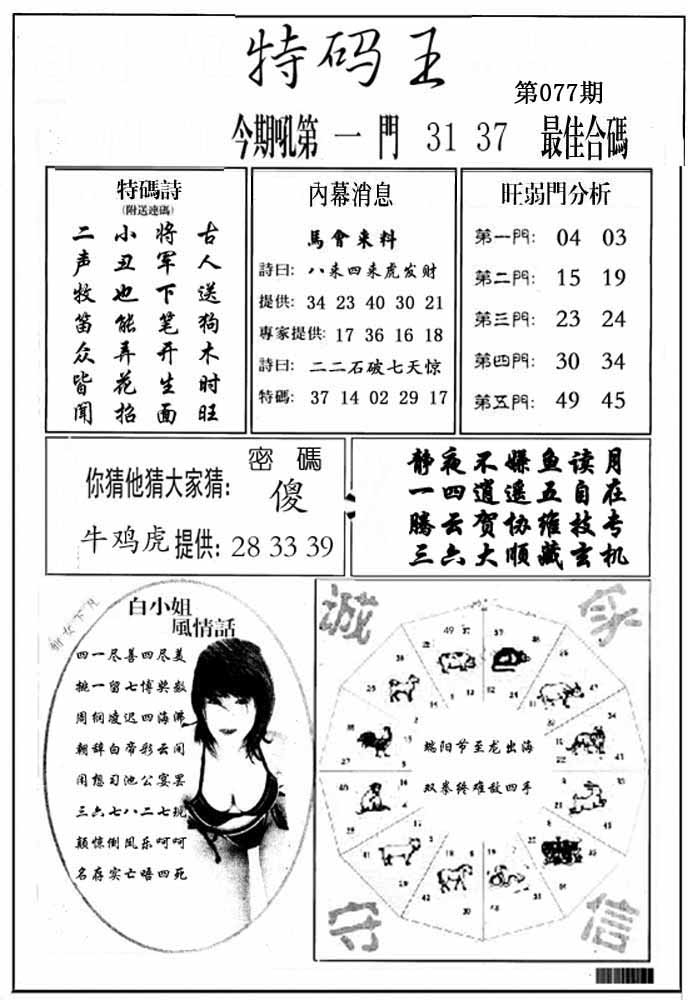 特码王
第077期
今期吼第一門 31 37 最佳合碼
特碼詩
(附送連碼)
古人送狗木时旺
将军下笔开生面
小丑也能弄花招
二声牧笛众皆闻
內幕消息
馬會来料
詩曰: 八来四来虎发财
提供: 34 23 40 30 21
專家提供: 17 36 16 18
詩曰: 二二石破七天惊
特碼: 37 14 02 29 17
旺弱門分析
第一門: 04 03
第二門: 15 19
第三門: 23 24
第四門: 30 34
第五門: 49 45
密碼
你猜他猜大家猜: 傻
牛鸡虎 提供: 28 33 39
静夜不嫌鱼读月
一四逍遥五自在
腾云贺协维技专
三六大顺藏玄机
白小姐
風情話
四一尽善四尽美
挑一留七博奖数
周桐凌迟四海佛
朝辞白帝彩云间
闲想习池公宴罢
三六七八二七现
颠惊倒凤乐呵呵
名存实亡唔四死
诚
守
信
端阳节至龙出海
双拳终难敌四手